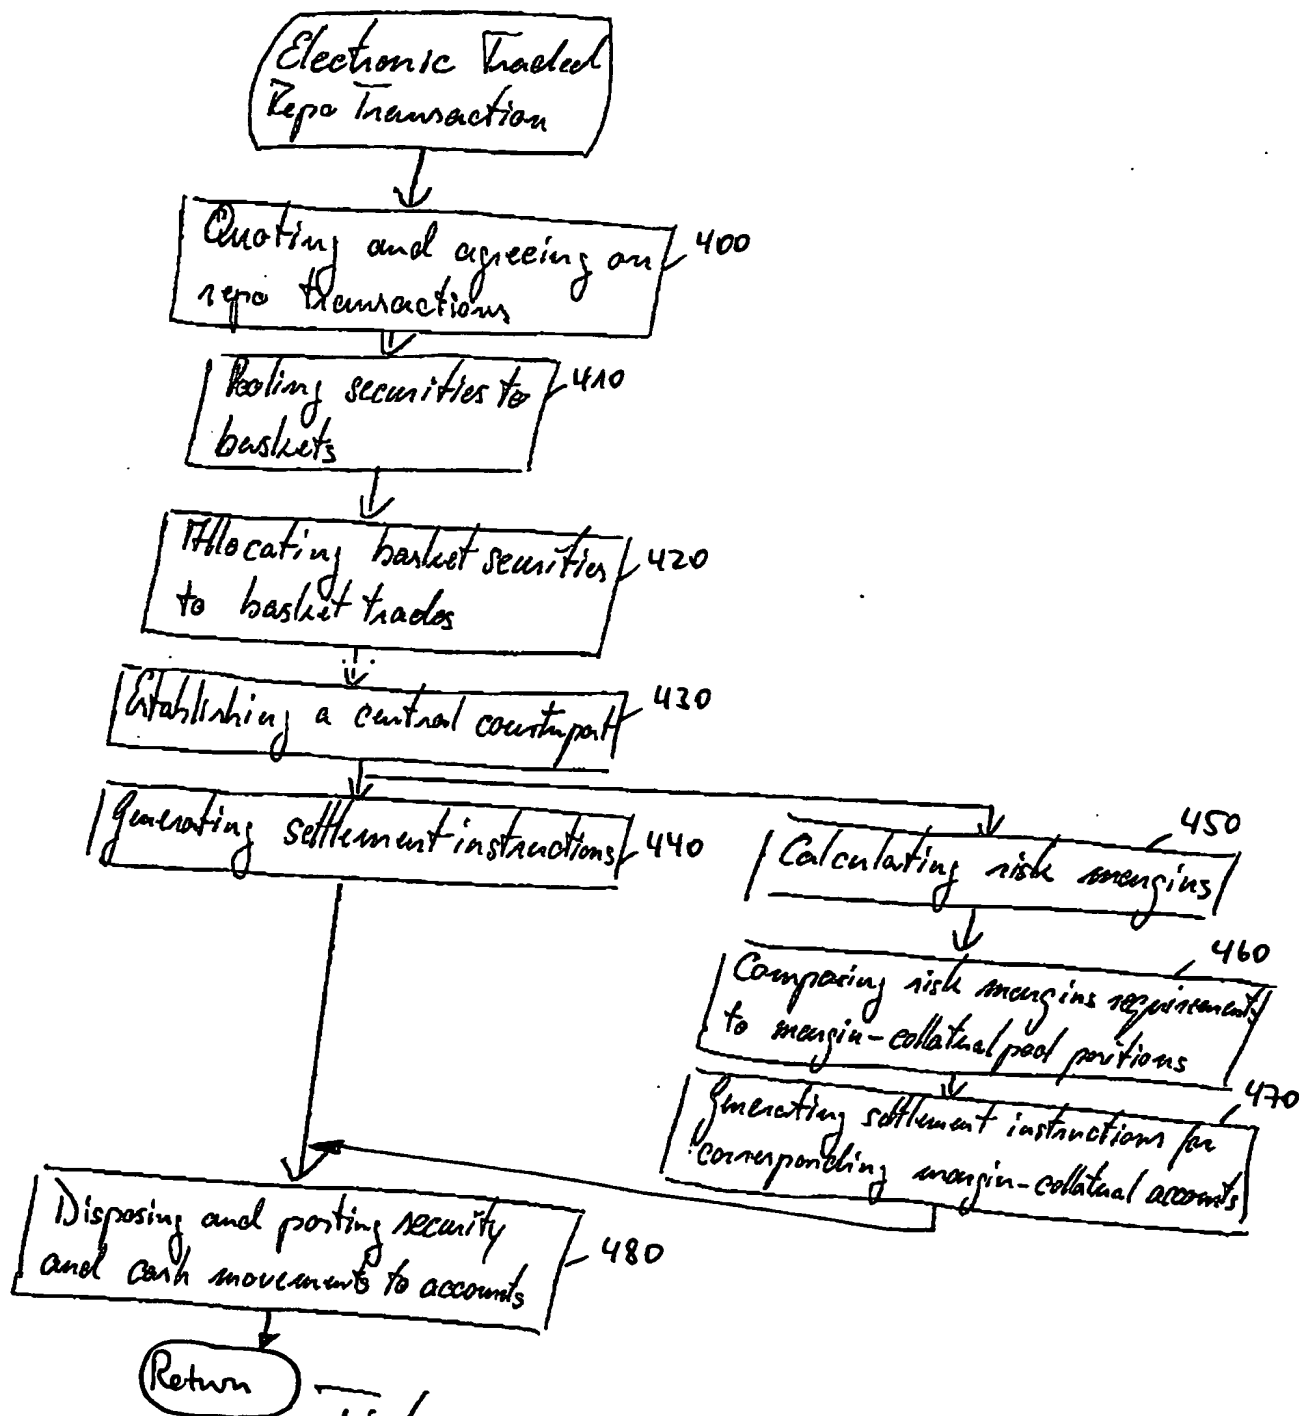 Electronic Traded
Repo Transaction
Quoting and agreeing on
repo transactions
400
Pooling securities to
baskets
410
Allocating basket securities
to basket trades
420
Establishing a central counterpart
430
Generating settlement instructions
440
Calculating risk margins
450
Comparing risk margins requirements
to margin-collateral pool positions
460
Generating settlement instructions for
corresponding margin-collateral accounts
470
Disposing and posting security
and cash movements to accounts
480
Return